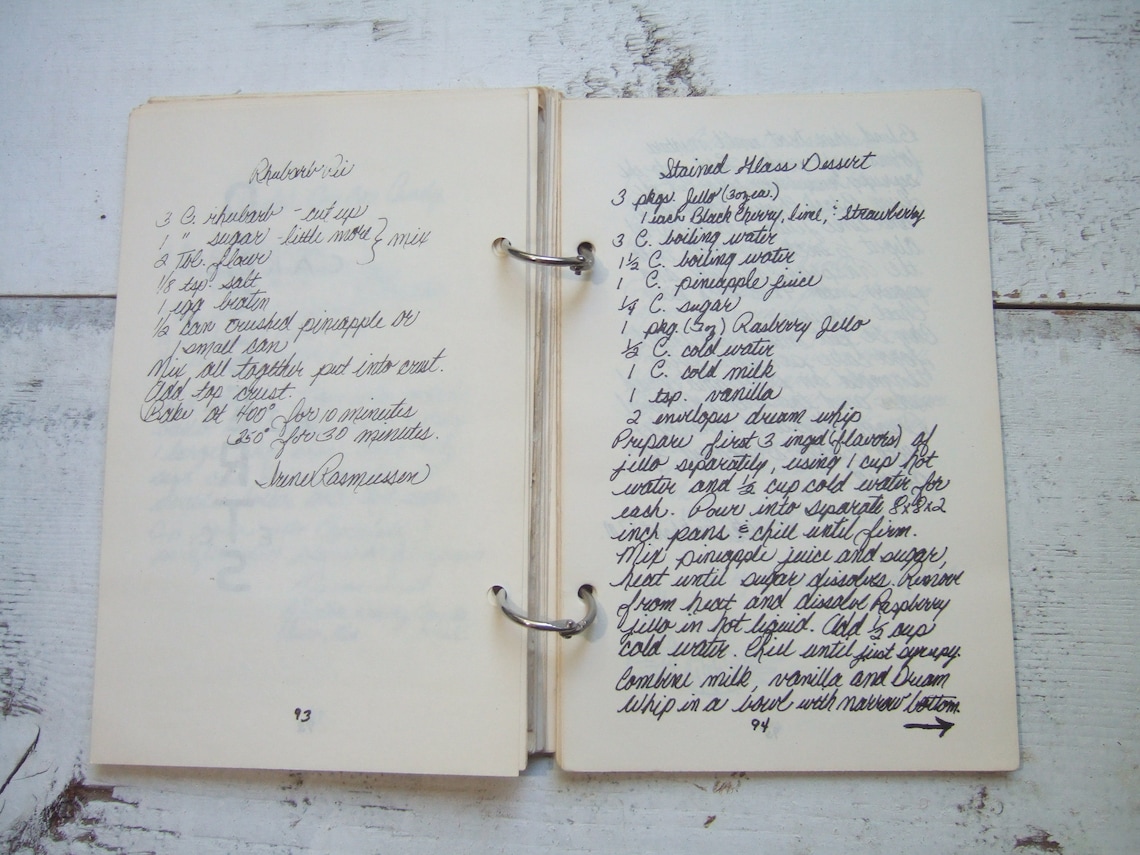 Rhubarb Pie
3 C. rhubarb - cut up
1 " sugar - little more } mix
2 Tbl. flour
1/8 tsp. salt
1 egg beaten
1/2 can crushed pineapple or
1 small can
Mix all together put into crust.
Add top crust.
Bake at 400° for 10 minutes
350° for 30 minutes.
Irene Rasmussen
93
Stained Glass Dessert
3 pkgs. Jello (3 oz ea.)
1 each Black Cherry, lime, & Strawberry
3 C. boiling water
1 1/2 C. boiling water
1 C. pineapple juice
1/4 C. sugar
1 pkg. (3 oz) Rasberry Jello
1/2 C. cold water
1 C. cold milk
1 tsp. vanilla
2 envelopes dream whip
Prepare first 3 ingd (flavors) of
jello separately, using 1 cup hot
water and 1/2 cup cold water for
each. Pour into separate 8x8x2
inch pans & chill until firm.
Mix pineapple juice and sugar,
heat until sugar dissolves. Remove
from heat and dissolve Raspberry
jello in hot liquid. Add 1/2 cup
cold water. Chill until just syrupy.
Combine milk, vanilla and Dream
Whip in a bowl with narrow bottom.
94